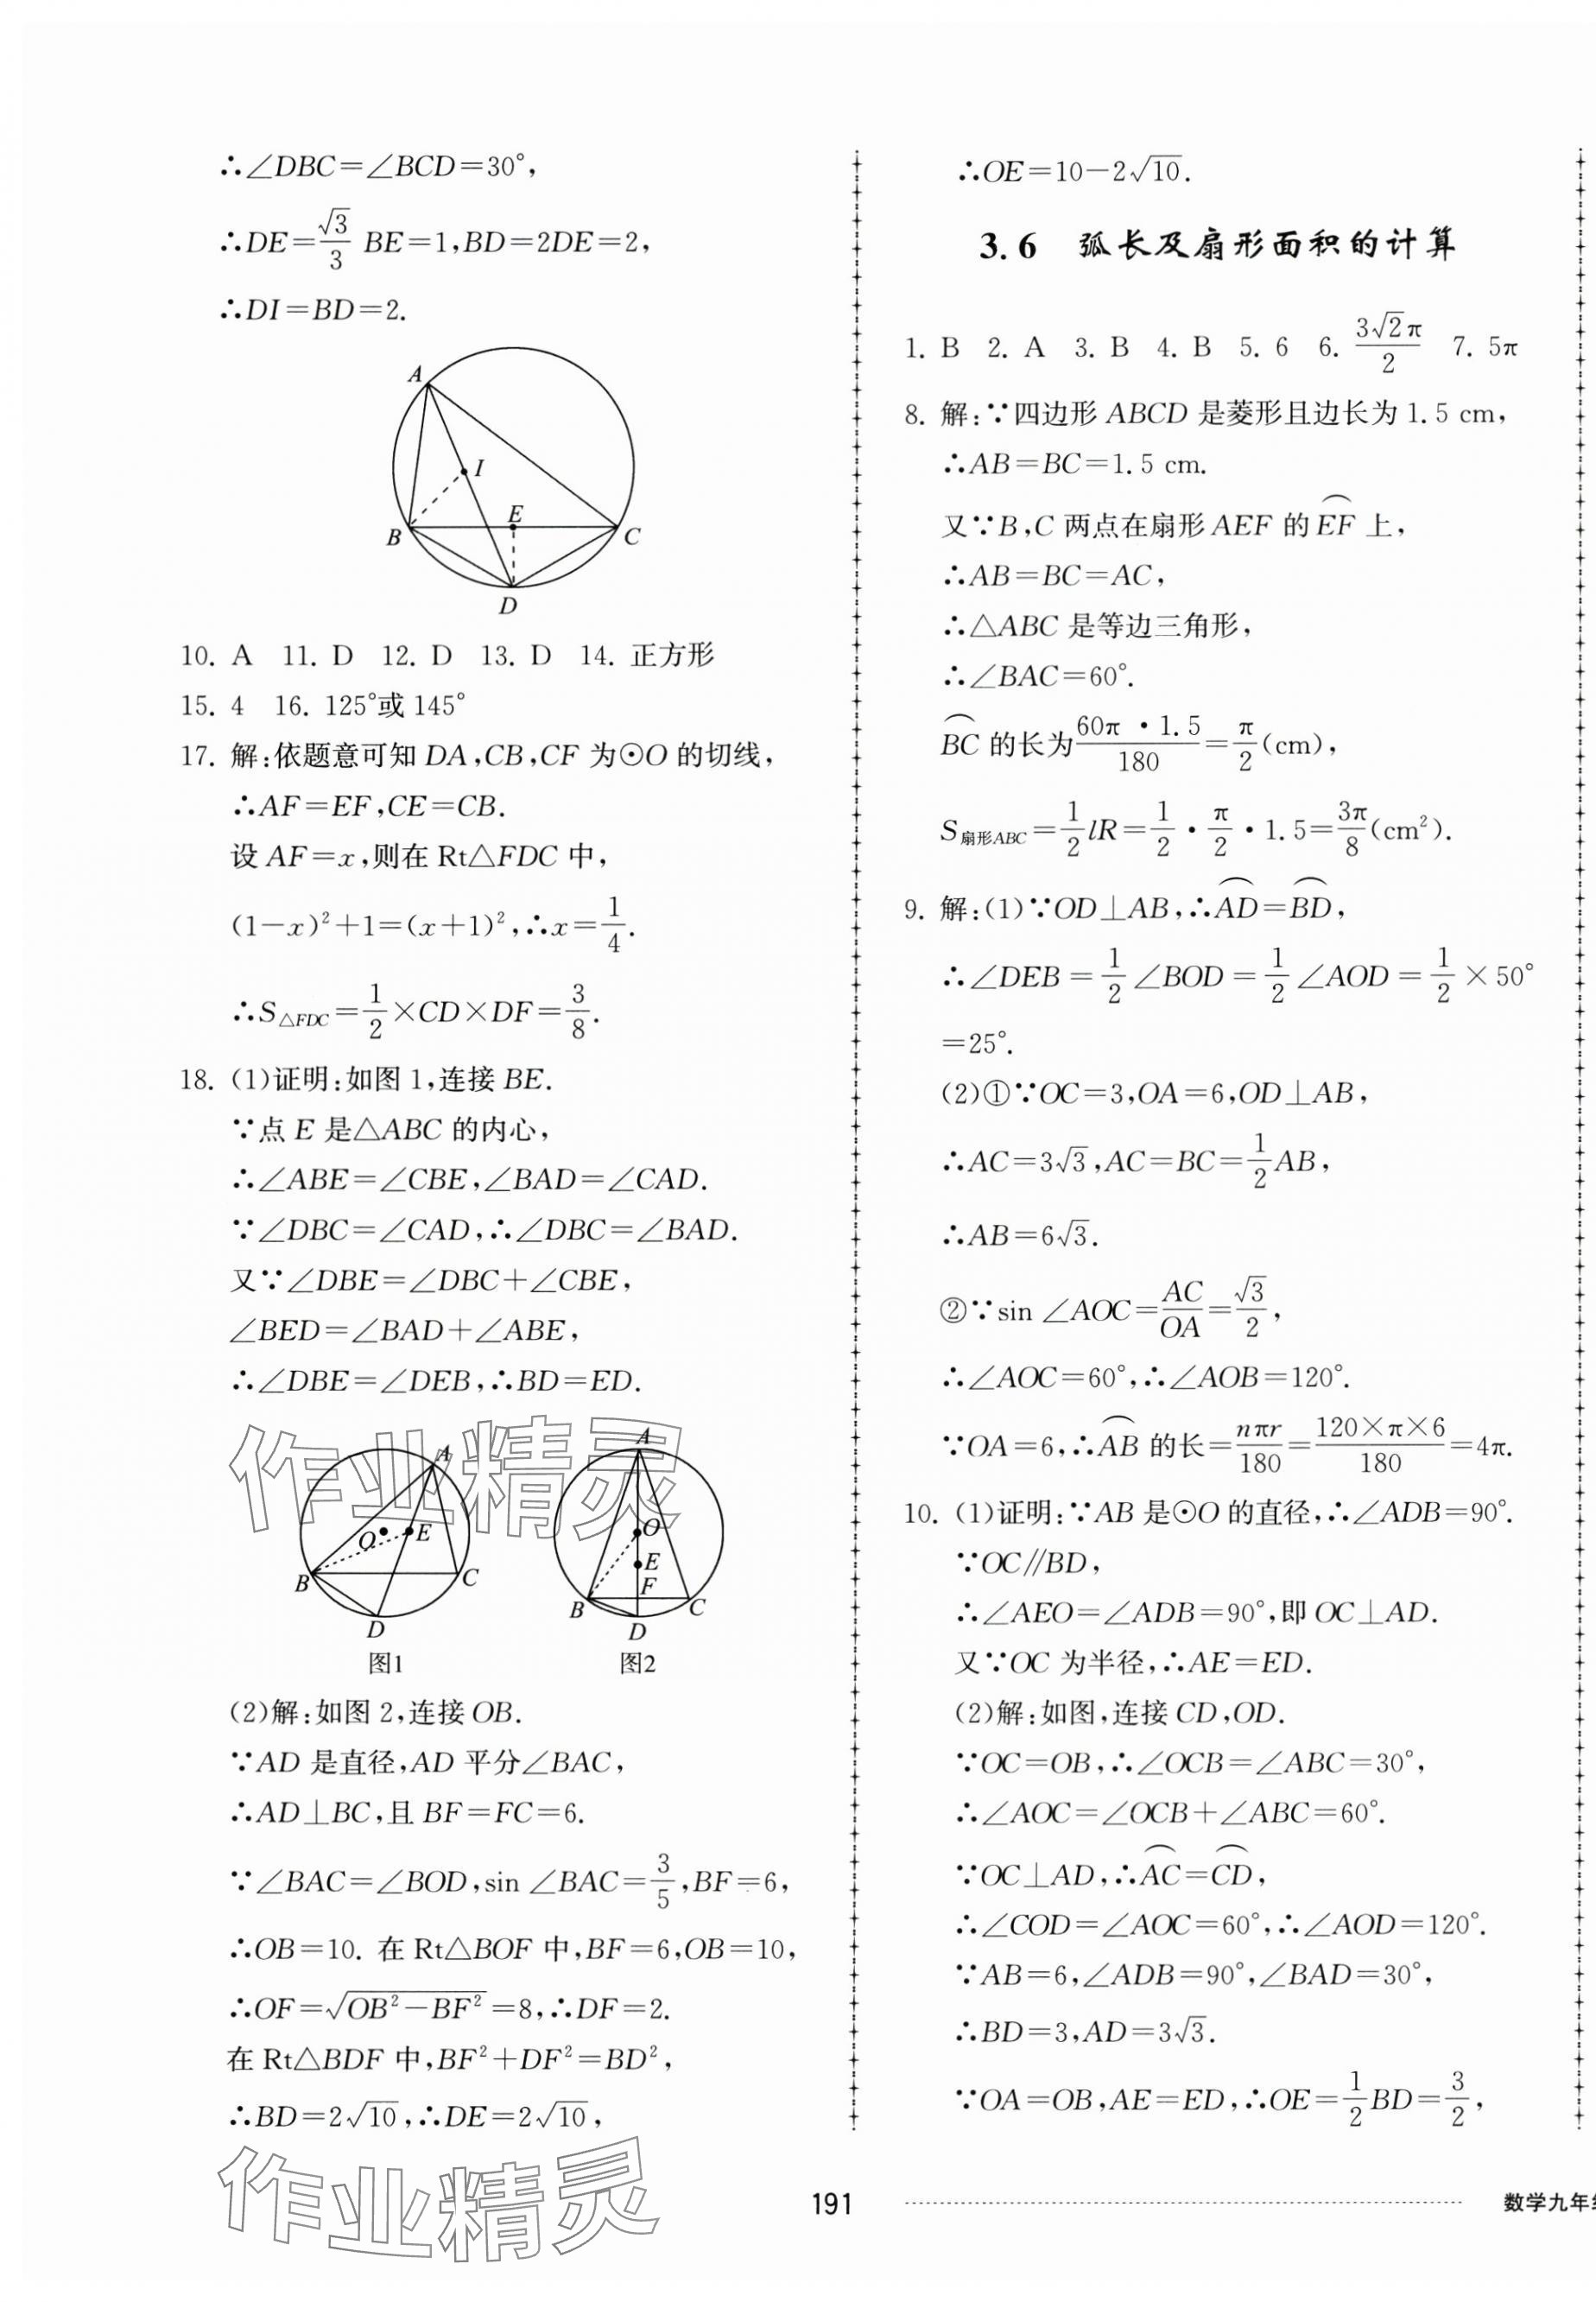 ∴∠DBC=∠BCD=30°,
∴DE=√3/3 BE=1,BD=2DE=2,
∴DI=BD=2.
A
I
E
B
C
D
10. A 11. D 12. D 13. D 14. 正方形
15. 4 16. 125°或145°
17. 解:依题意可知DA,CB,CF为⊙O的切线,
∴AF=EF,CE=CB.
设AF=x,则在Rt△FDC中,
(1-x)²+1=(x+1)²,∴x=1/4.
∴S△FDC=1/2×CD×DF=3/8.
18. (1)证明:如图1,连接BE.
∵点E是△ABC的内心,
∴∠ABE=∠CBE,∠BAD=∠CAD.
∵∠DBC=∠CAD,∴∠DBC=∠BAD.
又∵∠DBE=∠DBC+∠CBE,
∠BED=∠BAD+∠ABE,
∴∠DBE=∠DEB,∴BD=ED.
作业精灵
A
O
E
B
C
D
图1
A
O
E
F
B
C
D
图2
(2)解:如图2,连接OB.
∵AD是直径,AD平分∠BAC,
∴AD⊥BC,且BF=FC=6.
∵∠BAC=∠BOD,sin∠BAC=3/5,BF=6,
∴OB=10. 在Rt△BOF中,BF=6,OB=10,
∴OF=√(OB²-BF²)=8,∴DF=2.
在Rt△BDF中,BF²+DF²=BD²,
∴BD=2√10,∴DE=2√10,
作业精灵
∴OE=10-2√10.
3.6 弧长及扇形面积的计算
1. B 2. A 3. B 4. B 5. 6 6. 3√2π/2 7. 5π
8. 解:∵四边形ABCD是菱形且边长为1.5 cm,
∴AB=BC=1.5 cm.
又∵B,C两点在扇形AEF的⌒EF上,
∴AB=BC=AC,
∴△ABC是等边三角形,
∴∠BAC=60°.
⌒BC的长为60π·1.5/180=π/2(cm),
S扇形ABC=1/2lR=1/2·π/2·1.5=3π/8(cm²).
9. 解:(1)∵OD⊥AB,∴⌒AD=⌒BD,
∴∠DEB=1/2∠BOD=1/2∠AOD=1/2×50°
=25°.
(2)①∵OC=3,OA=6,OD⊥AB,
∴AC=3√3,AC=BC=1/2AB,
∴AB=6√3.
②∵sin∠AOC=AC/OA=√3/2,
∴∠AOC=60°,∴∠AOB=120°.
∵OA=6,∴⌒AB的长=nπr/180=120×π×6/180=4π.
10. (1)证明:∵AB是⊙O的直径,∴∠ADB=90°.
∵OC∥BD,
∴∠AEO=∠ADB=90°,即OC⊥AD.
又∵OC为半径,∴AE=ED.
(2)解:如图,连接CD,OD.
∵OC=OB,∴∠OCB=∠ABC=30°,
∴∠AOC=∠OCB+∠ABC=60°.
∵OC⊥AD,∴⌒AC=⌒CD,
∴∠COD=∠AOC=60°,∴∠AOD=120°.
∵AB=6,∠ADB=90°,∠BAD=30°,
∴BD=3,AD=3√3.
∵OA=OB,AE=ED,∴OE=1/2BD=3/2,
191
数学九年